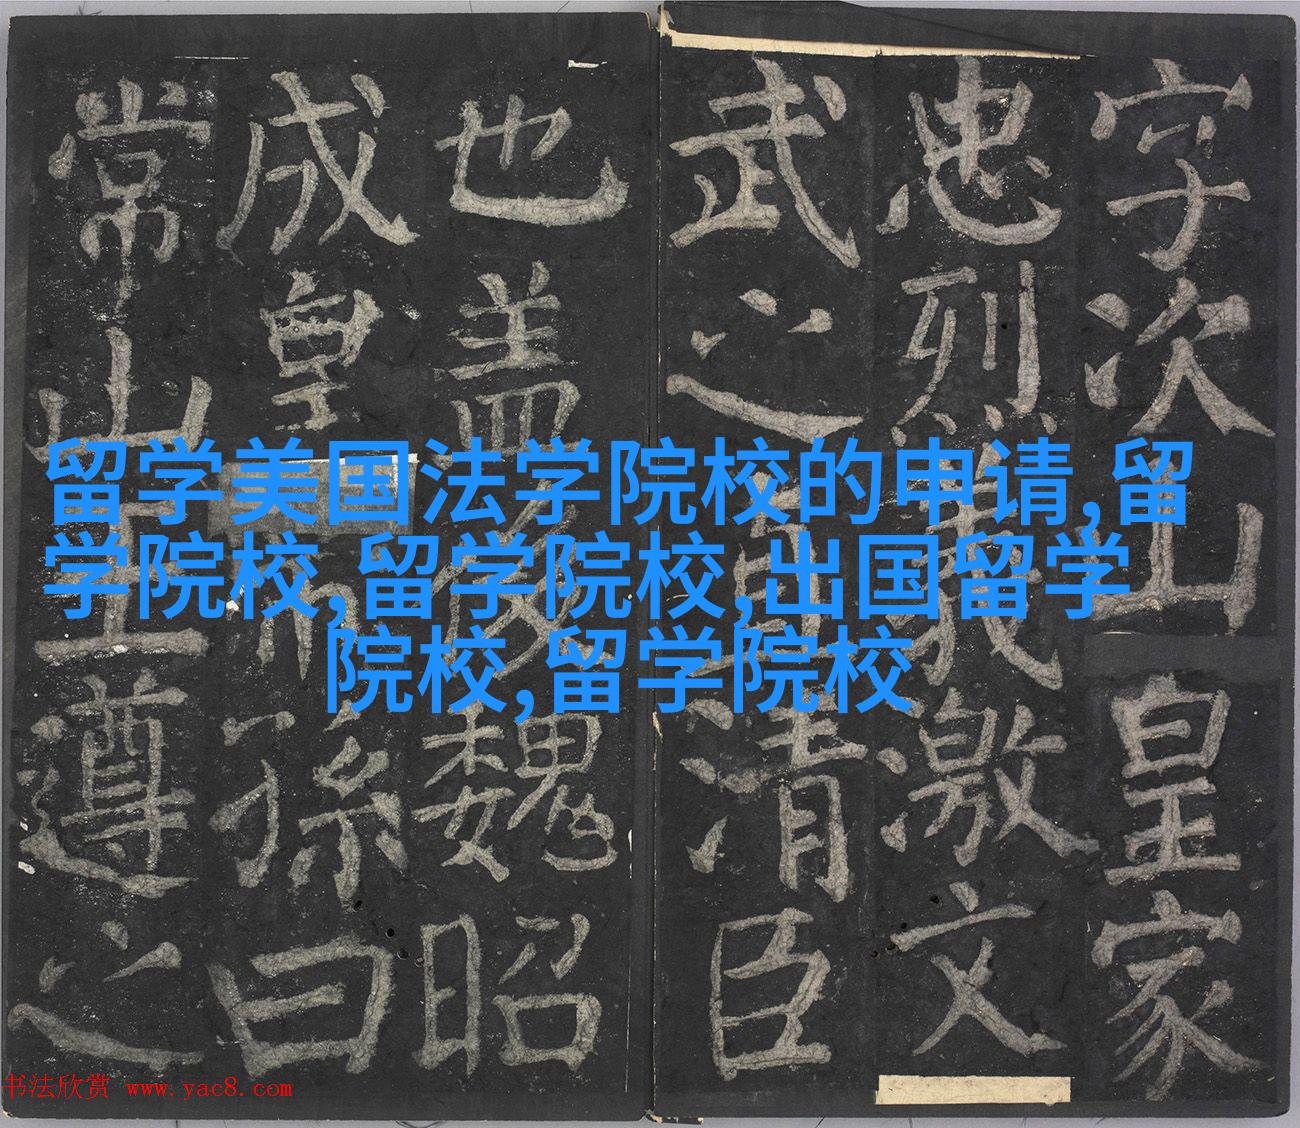 字次山皇家
忠烈義激文
武之直清臣
也盖後魏昭
成皇帝孫曰
常山王遵之
留学美国法学院校的申请,留
学院校,留学院校,出国留学
院校,留学院校
书法欣赏 www.yac8.com